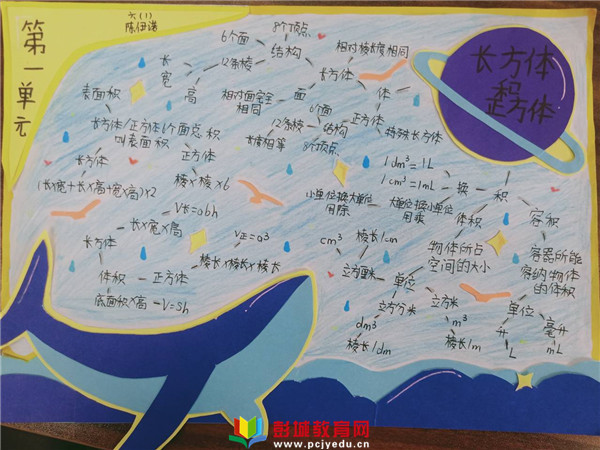 第一单元
六(1)
陈伊诺
长方体
和
正方体
6个面
8个顶点
12条棱
结构
长
宽
高
相对棱长度相同
长方体
体
相对面完全
相同
面
6个面
12条棱
结构
正方体
特殊长方体
棱相等
8个顶点
表面积
长方体/正方体6个面总积
叫表面积
长方体
正方体
(长×宽+长×高+宽×高)×2
棱×棱×6
V长=abh
长×宽×高
长方体
V正=a³
棱长×棱长×棱长
体积
正方体
底面积×高
V=sh
1dm³=1L
1cm³=1mL
换
积
小单位换大单位
用除
大单位换小单位
用乘
体积
容积
物体所占
空间的大小
容器所能
容纳物体
的体积
cm³
棱长1cm
立方厘米
单位
立方分米
立方米
dm³
棱长1dm
m³
棱长1m
单位
升
毫升
L
mL
彭城教育网
www.pcjyedu.cn